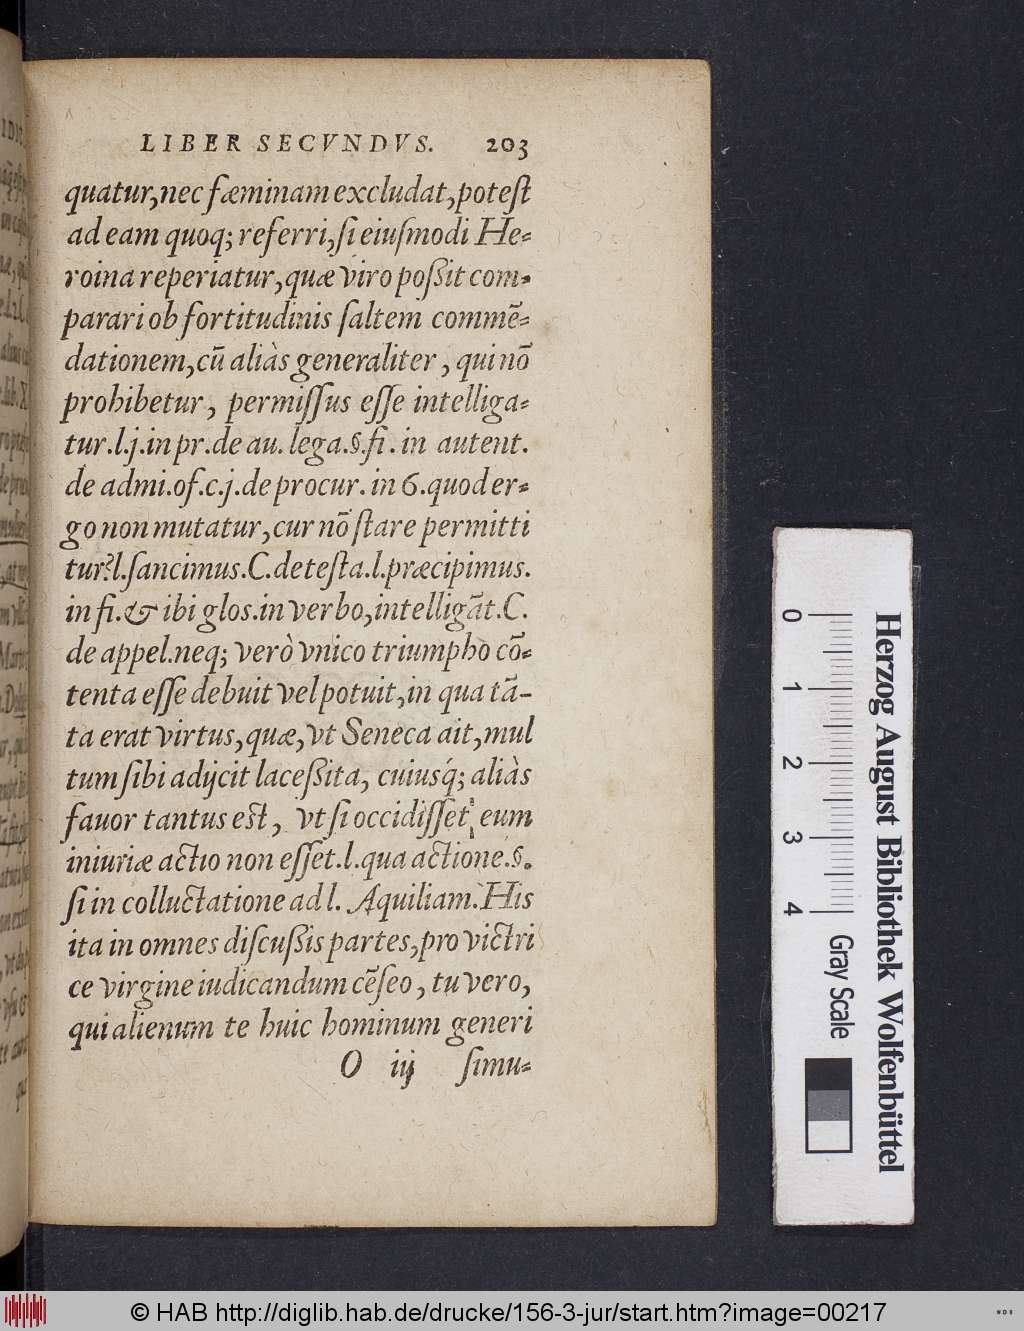 LIBER SECVNDVS. 203
quatur, nec fæminam excludat, poteſt
ad eam quoq; referri, ſi eiuſmodi He-
roina reperiatur, quæ viro poßit com-
parari ob fortitudinis ſaltem commẽ-
dationem, cũ aliàs generaliter, qui nõ
prohibetur, permiſſus eſſe intelliga-
tur.l.j.in pr.de au. lega.§.fi. in autent.
de admi.of.c.j.de procur. in 6.quod er-
go non mutatur, cur nõ ſtare permitti
tur?l.ſancimus.C.de teſta.l.præcipimus.
in fi.& ibi glos.in verbo, intelligãt.C.
de appel.neq; verò vnico triumpho cõ-
tenta eſſe debuit vel potuit, in qua tã-
ta erat virtus, quæ, vt Seneca ait, mul
tum ſibi adijcit laceßita, cuiusq́; aliàs
fauor tantus est, vt ſi occidiſſet eum
iniuriæ actio non eſſet.l.qua actione.§.
ſi in colluctatione ad l. Aquiliam. His
ita in omnes diſcußis partes, pro victri
ce virgine iudicandum cẽſeo, tu vero,
qui alienum te huic hominum generi
O iij ſimu-
Herzog August Bibliothek Wolfenbüttel
0 1 2 3 4
Gray Scale
© HAB http://diglib.hab.de/drucke/156-3-jur/start.htm?image=00217